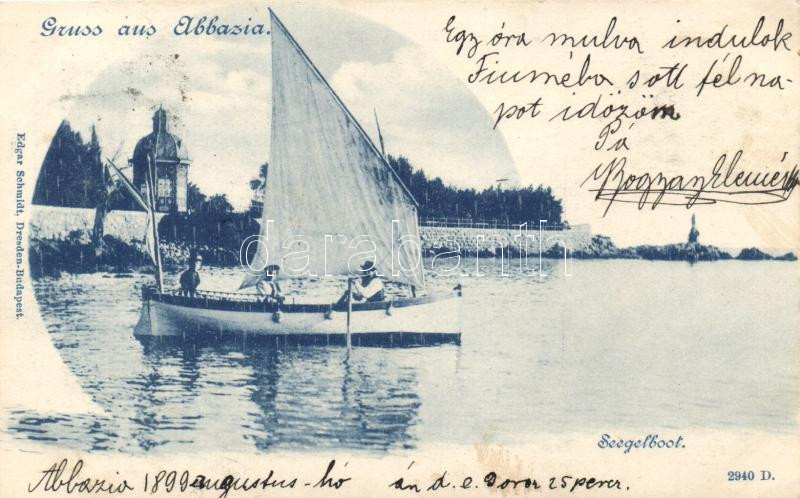 Gruss aus Abbazia.
Egy óra mulva indulok
Fiuméba sott fél na-
pot időzöm
Pá
Bogyay Elemér
Edgar Schmidt, Dresden-Budapest.
darabanth
Seegelboot.
Abbazia 1899 augustus-hó án d. e. óra 25 perc.
2940 D.